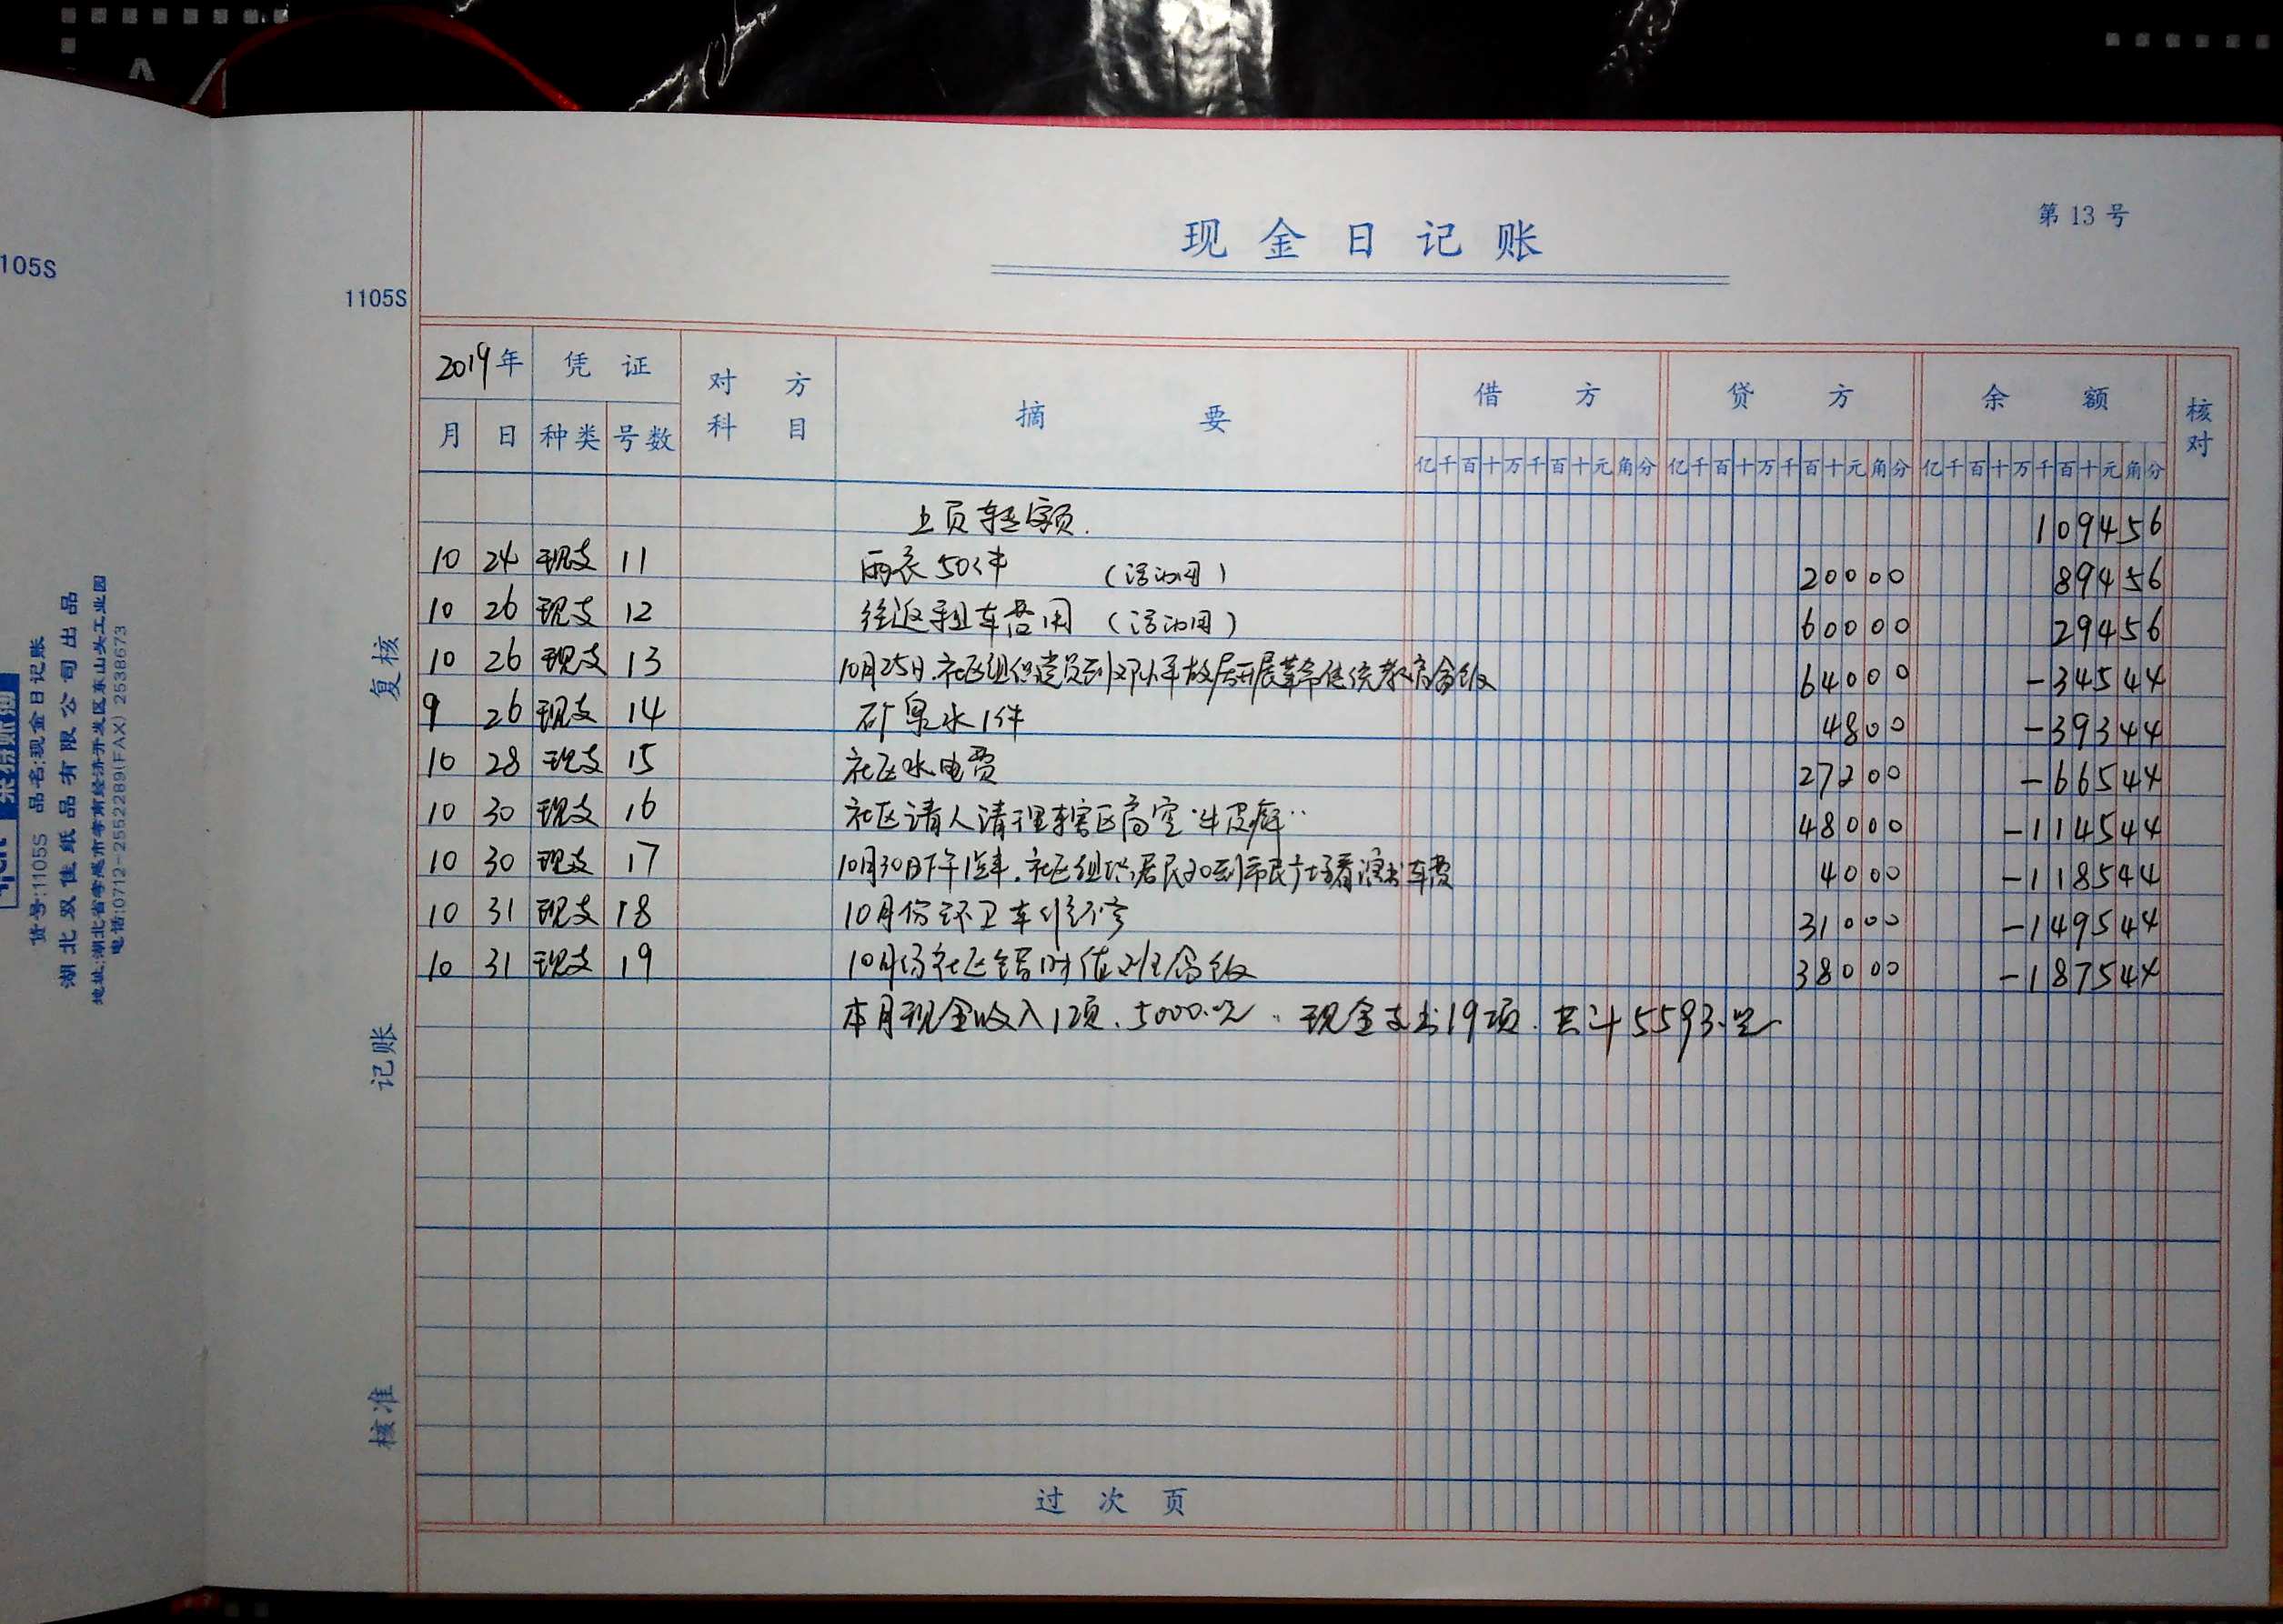 105S
货号:1105S 品名:现金日记账
湖北双佳纸品有限公司出品
地址:湖北省孝感市孝南经济开发区东山头工业园
电话:0712-2552289(FAX) 2538673
1105S
复核
记账
核准
现金日记账
第 13 号
2019年 凭证 对方科目 摘要 借方 贷方 余额 核对
月 日 种类 号数 亿千百十万千百十元角分 亿千百十万千百十元角分 亿千百十万千百十元角分
上页转额. 109456
10 24 现支 11 雨衣50件 (活动用) 20000 89456
10 26 现支 12 往返租车费用 (活动用) 60000 29456
10 26 现支 13 10月25日.社区组织党员到邓小平故居开展革命传统教育餐饭 64000 -34544
9 26 现支 14 矿泉水1件 4800 -39344
10 28 现支 15 社区水电费 27200 -66544
10 30 现支 16 社区请人清理辖区高空"牛皮癣" 48000 -114544
10 30 现支 17 10月30日下午 社区组织居民20到市民广场看演出车费 4000 -118544
10 31 现支 18 10月份环卫车维修 31000 -149544
10 31 现支 19 10月份社区错时值班餐饭 38000 -187544
本月现金收入1项、5000.元. 现金支出19项. 共计5593.元
过次页